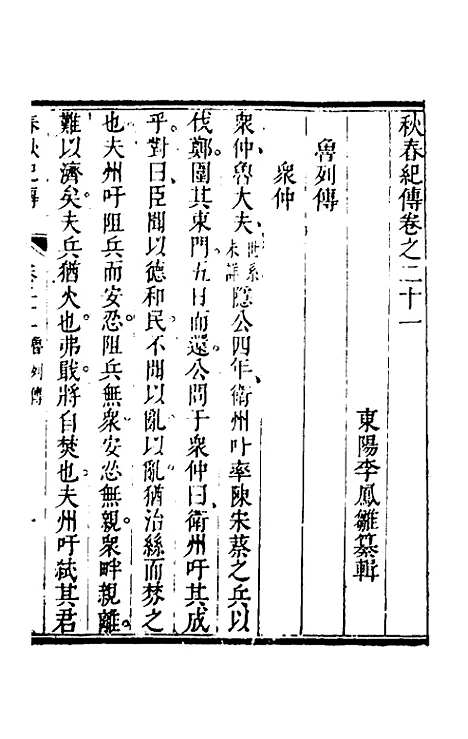 秋春紀傳卷之二十一
東陽李鳳雛纂輯
魯列傳
衆仲
衆仲魯大夫世系未詳隱公四年衛州吁率陳宋蔡之兵以
伐鄭圍其東門五日而還公問于衆仲曰衛州吁其成
乎對曰臣聞以德和民不聞以亂以亂猶治絲而棼之
也夫州吁阻兵而安忍阻兵無衆安忍無親衆畔親離
難以濟矣夫兵猶火也弗戢將自焚也夫州吁弑其君
春秋紀傳 卷二十一魯列傳 一